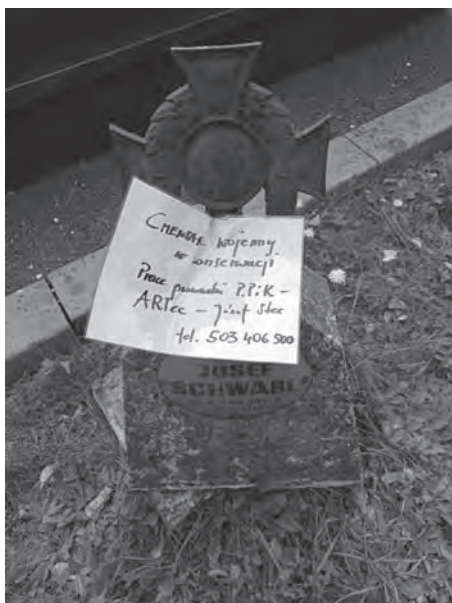 CMENTARZ wojenny
w konserwacji
Prace prowadzi P.P.i K -
ARTec - Józef Stec
tel. 503 406 500
JOSEF
SCHWABL